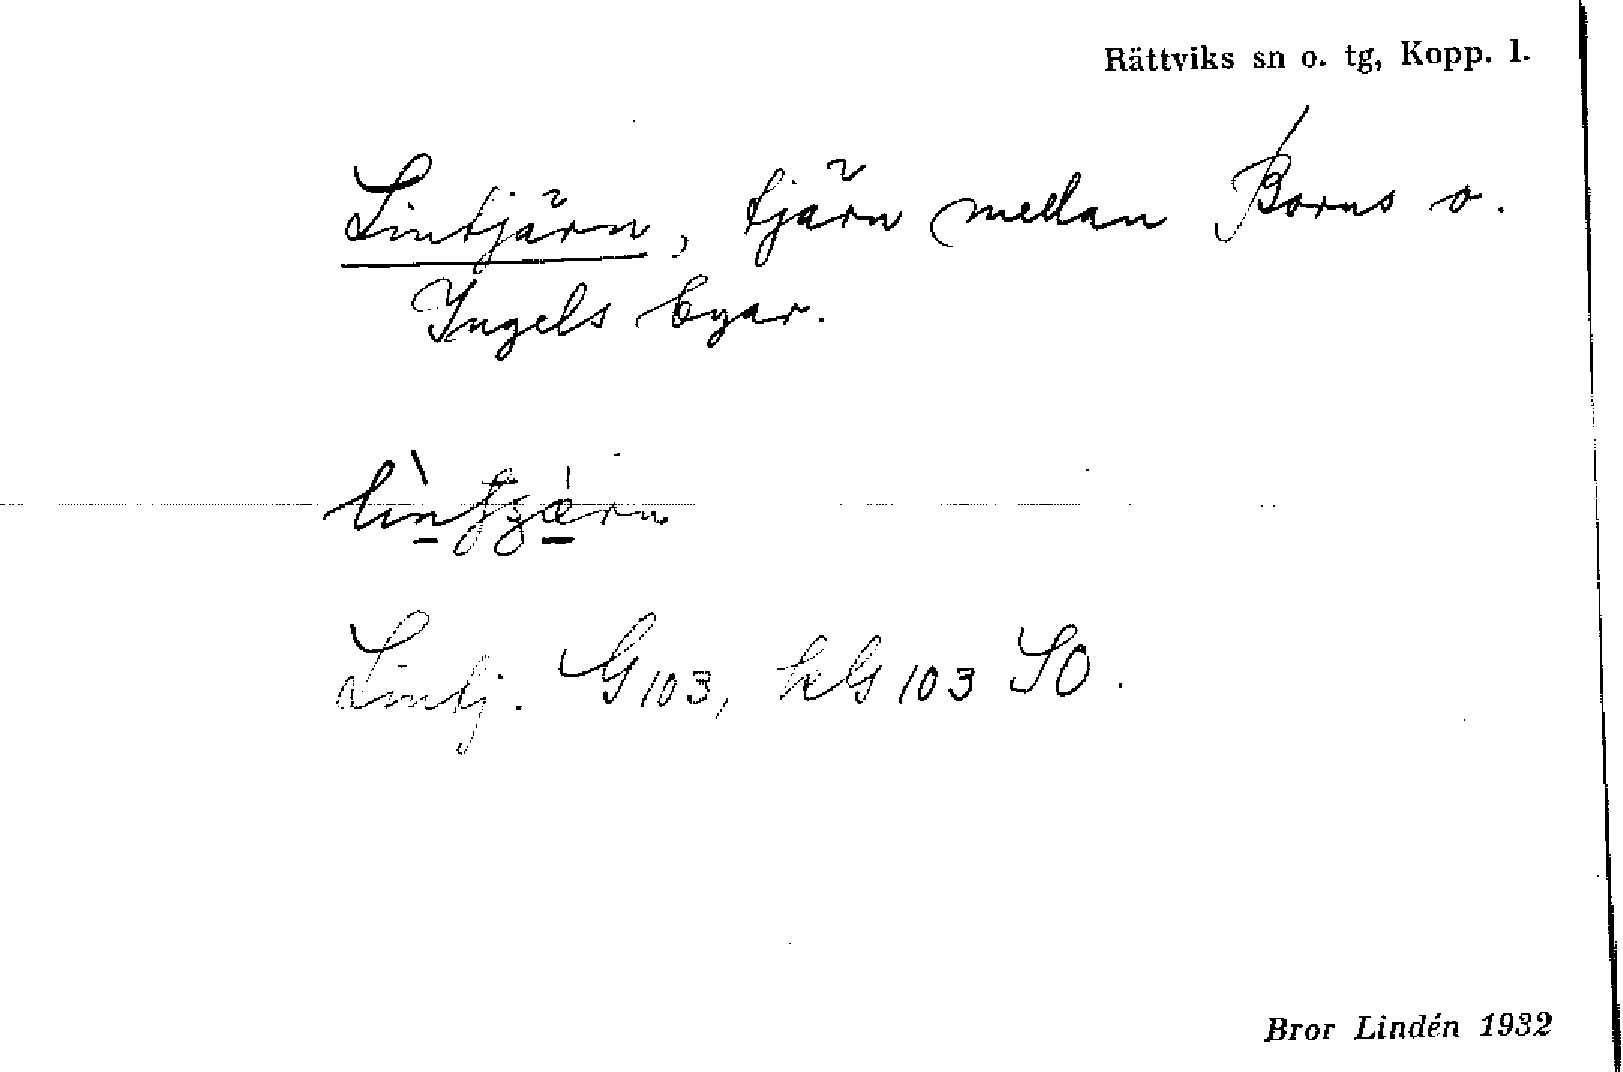 Rättviks sn o. tg, Kopp. l.
Lintjärn, tjärn mellan Borns o.
Ingels byar.
Lintj. G 103, kG 103 SO.
Bror Lindén 1932